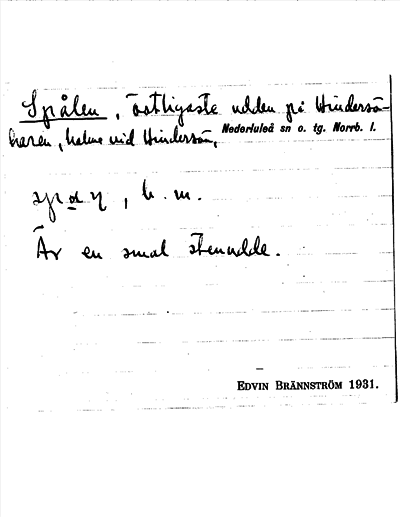 Spålen, östligaste udden på Hindersö-
haren, holme vid Hindersön, Nederluleå sn o. tg. Norrb. l.
b. m.
Är en smal stenudde.
EDVIN BRÄNNSTRÖM 1931.